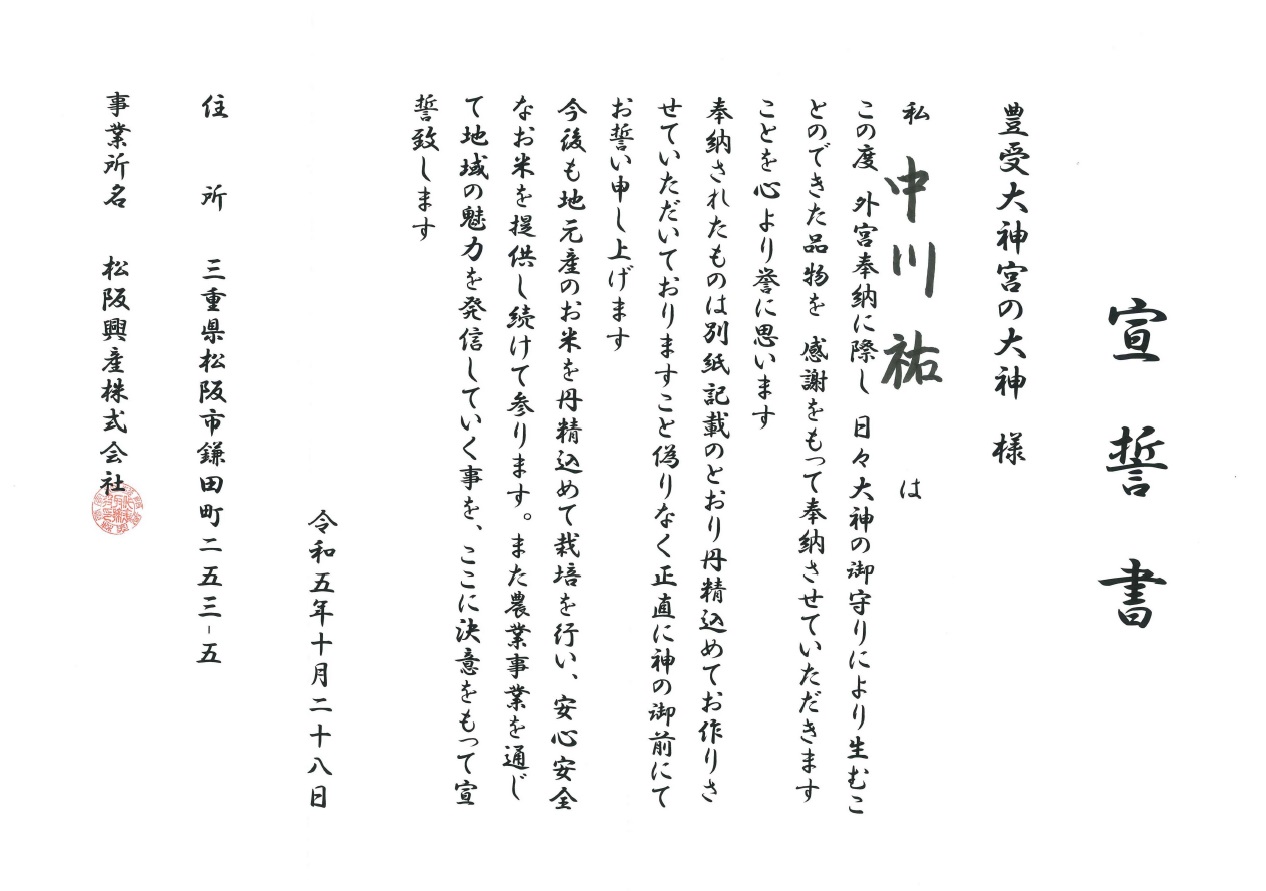 宣誓書
豊受大神宮の大神 様
私 中川祐 は
この度 外宮奉納に際し 日々大神の御守りにより生むこ
とのできた品物を 感謝をもって奉納させていただきます
ことを心より誉に思います
奉納されたものは別紙記載のとおり丹精込めてお作りさ
せていただいておりますこと偽りなく正直に神の御前にて
お誓い申し上げます
今後も地元産のお米を丹精込めて栽培を行い、安心安全
なお米を提供し続けて参ります。また農業事業を通じ
て地域の魅力を発信していく事を、ここに決意をもって宣
誓致します
令和五年十月二十八日
住所 三重県松阪市鎌田町二五三-五
事業所名 松阪興産株式会社